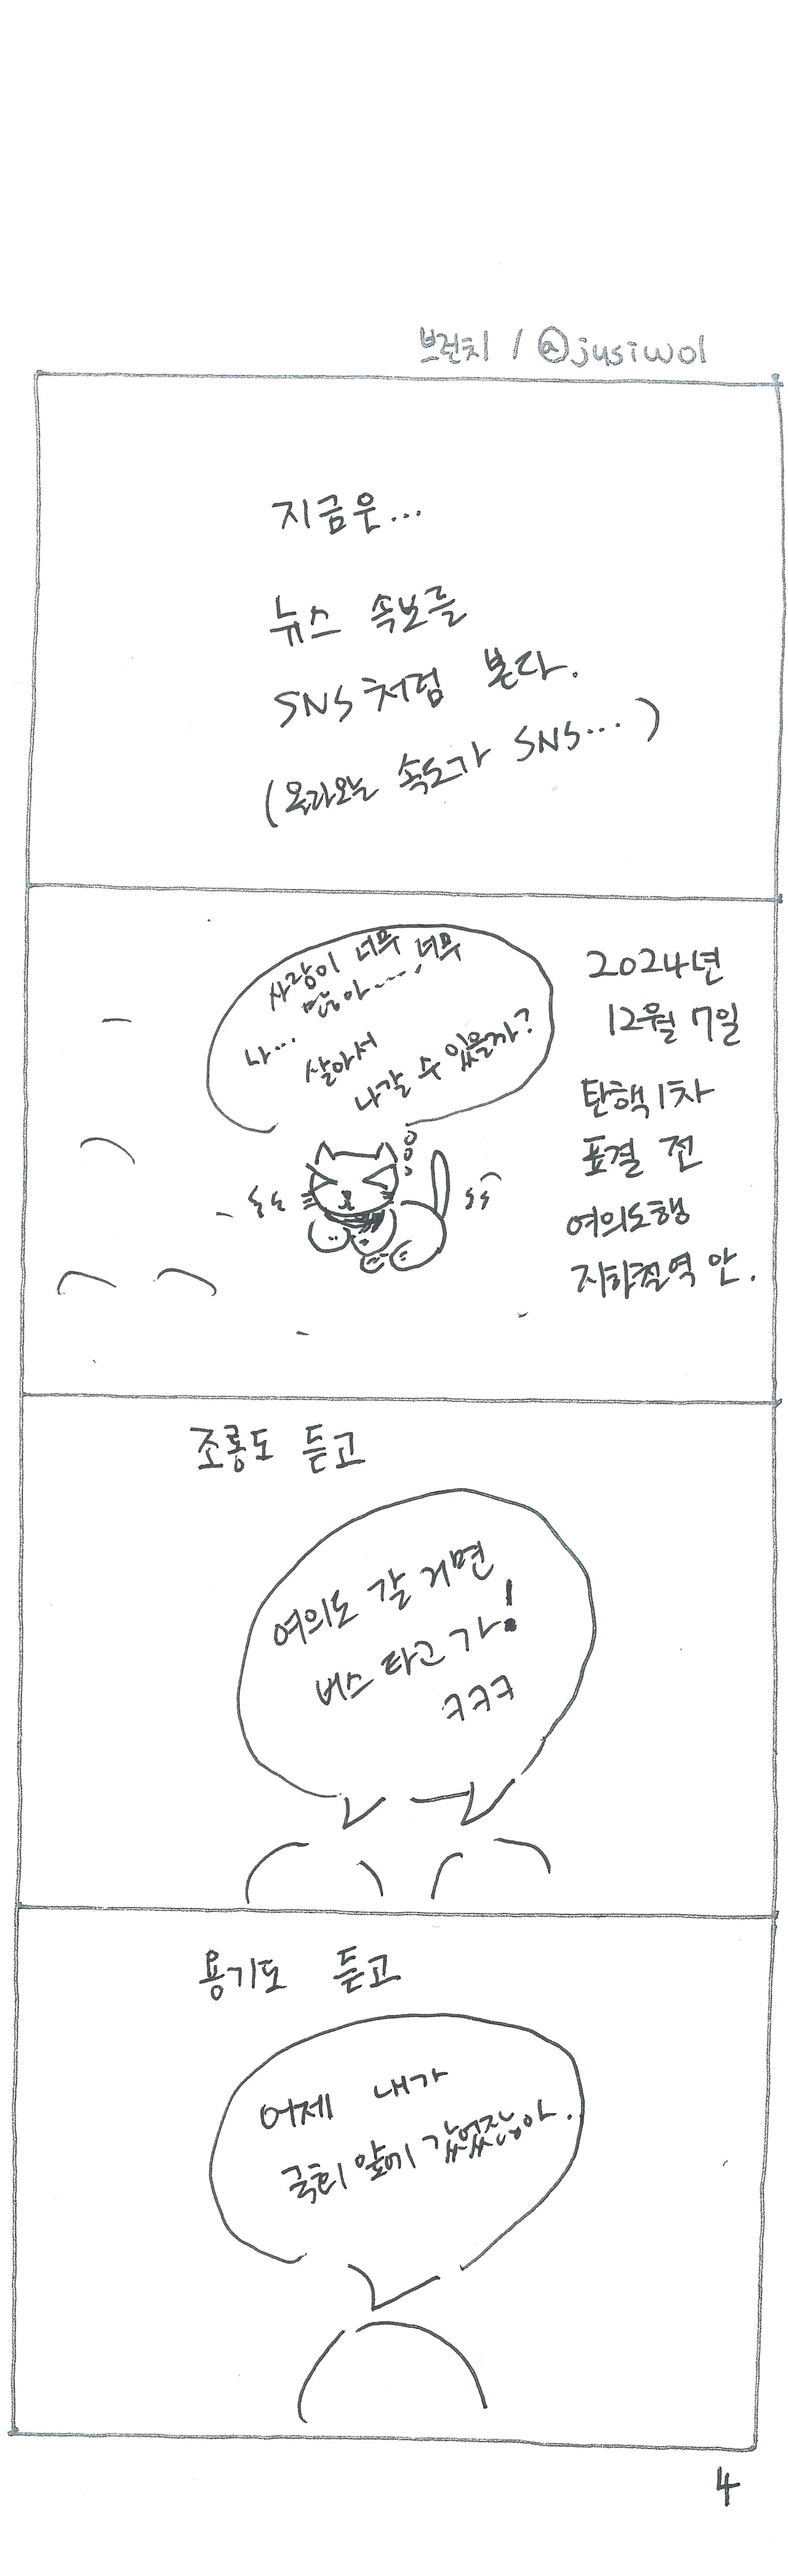 브런치 / @jusiwol
지금은...
뉴스 속보를
SNS처럼 본다.
(올라오는 속도가 SNS...)
사람이 너무 너무
많아......
나... 살아서
나갈 수 있을까?
2024년
12월 7일
탄핵 1차
표결 전
여의도행
지하철역 안.
조롱도 듣고
여의도 갈 거면
버스 타고 가!
ㅋㅋㅋ
용기도 듣고
어제 내가
국회 앞에 갔었잖아.
4